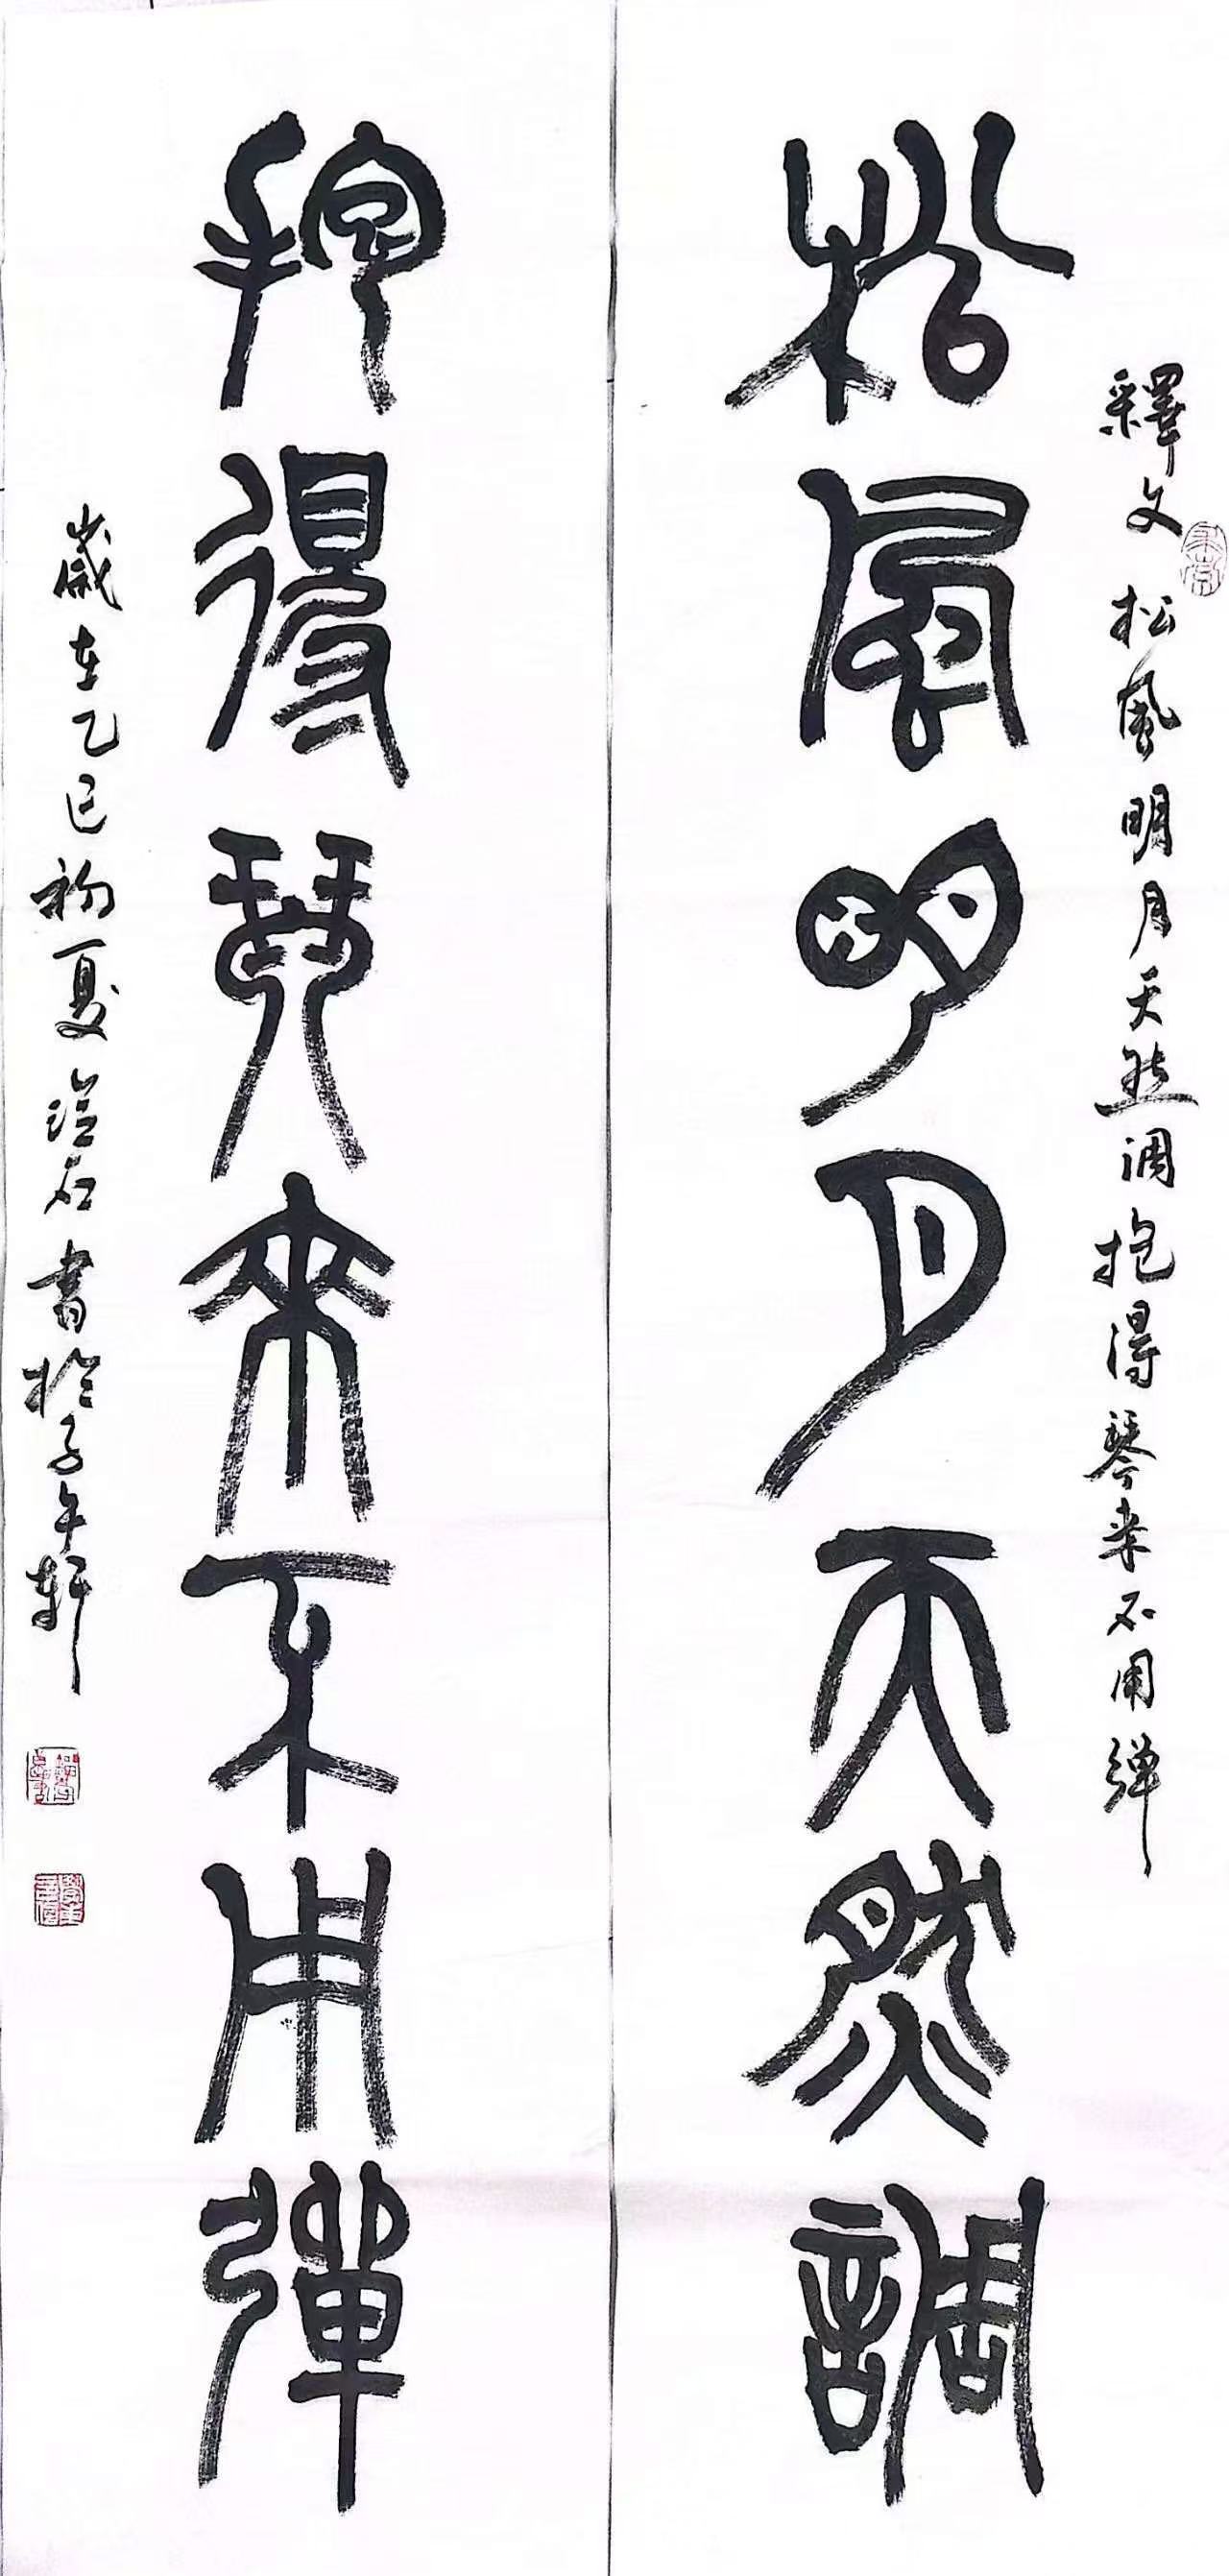 釋文 松風明月天然调抱得琴来不用弹
松風明月天然調
抱得琴來不用彈
歲在乙巳初夏 石書於子午軒